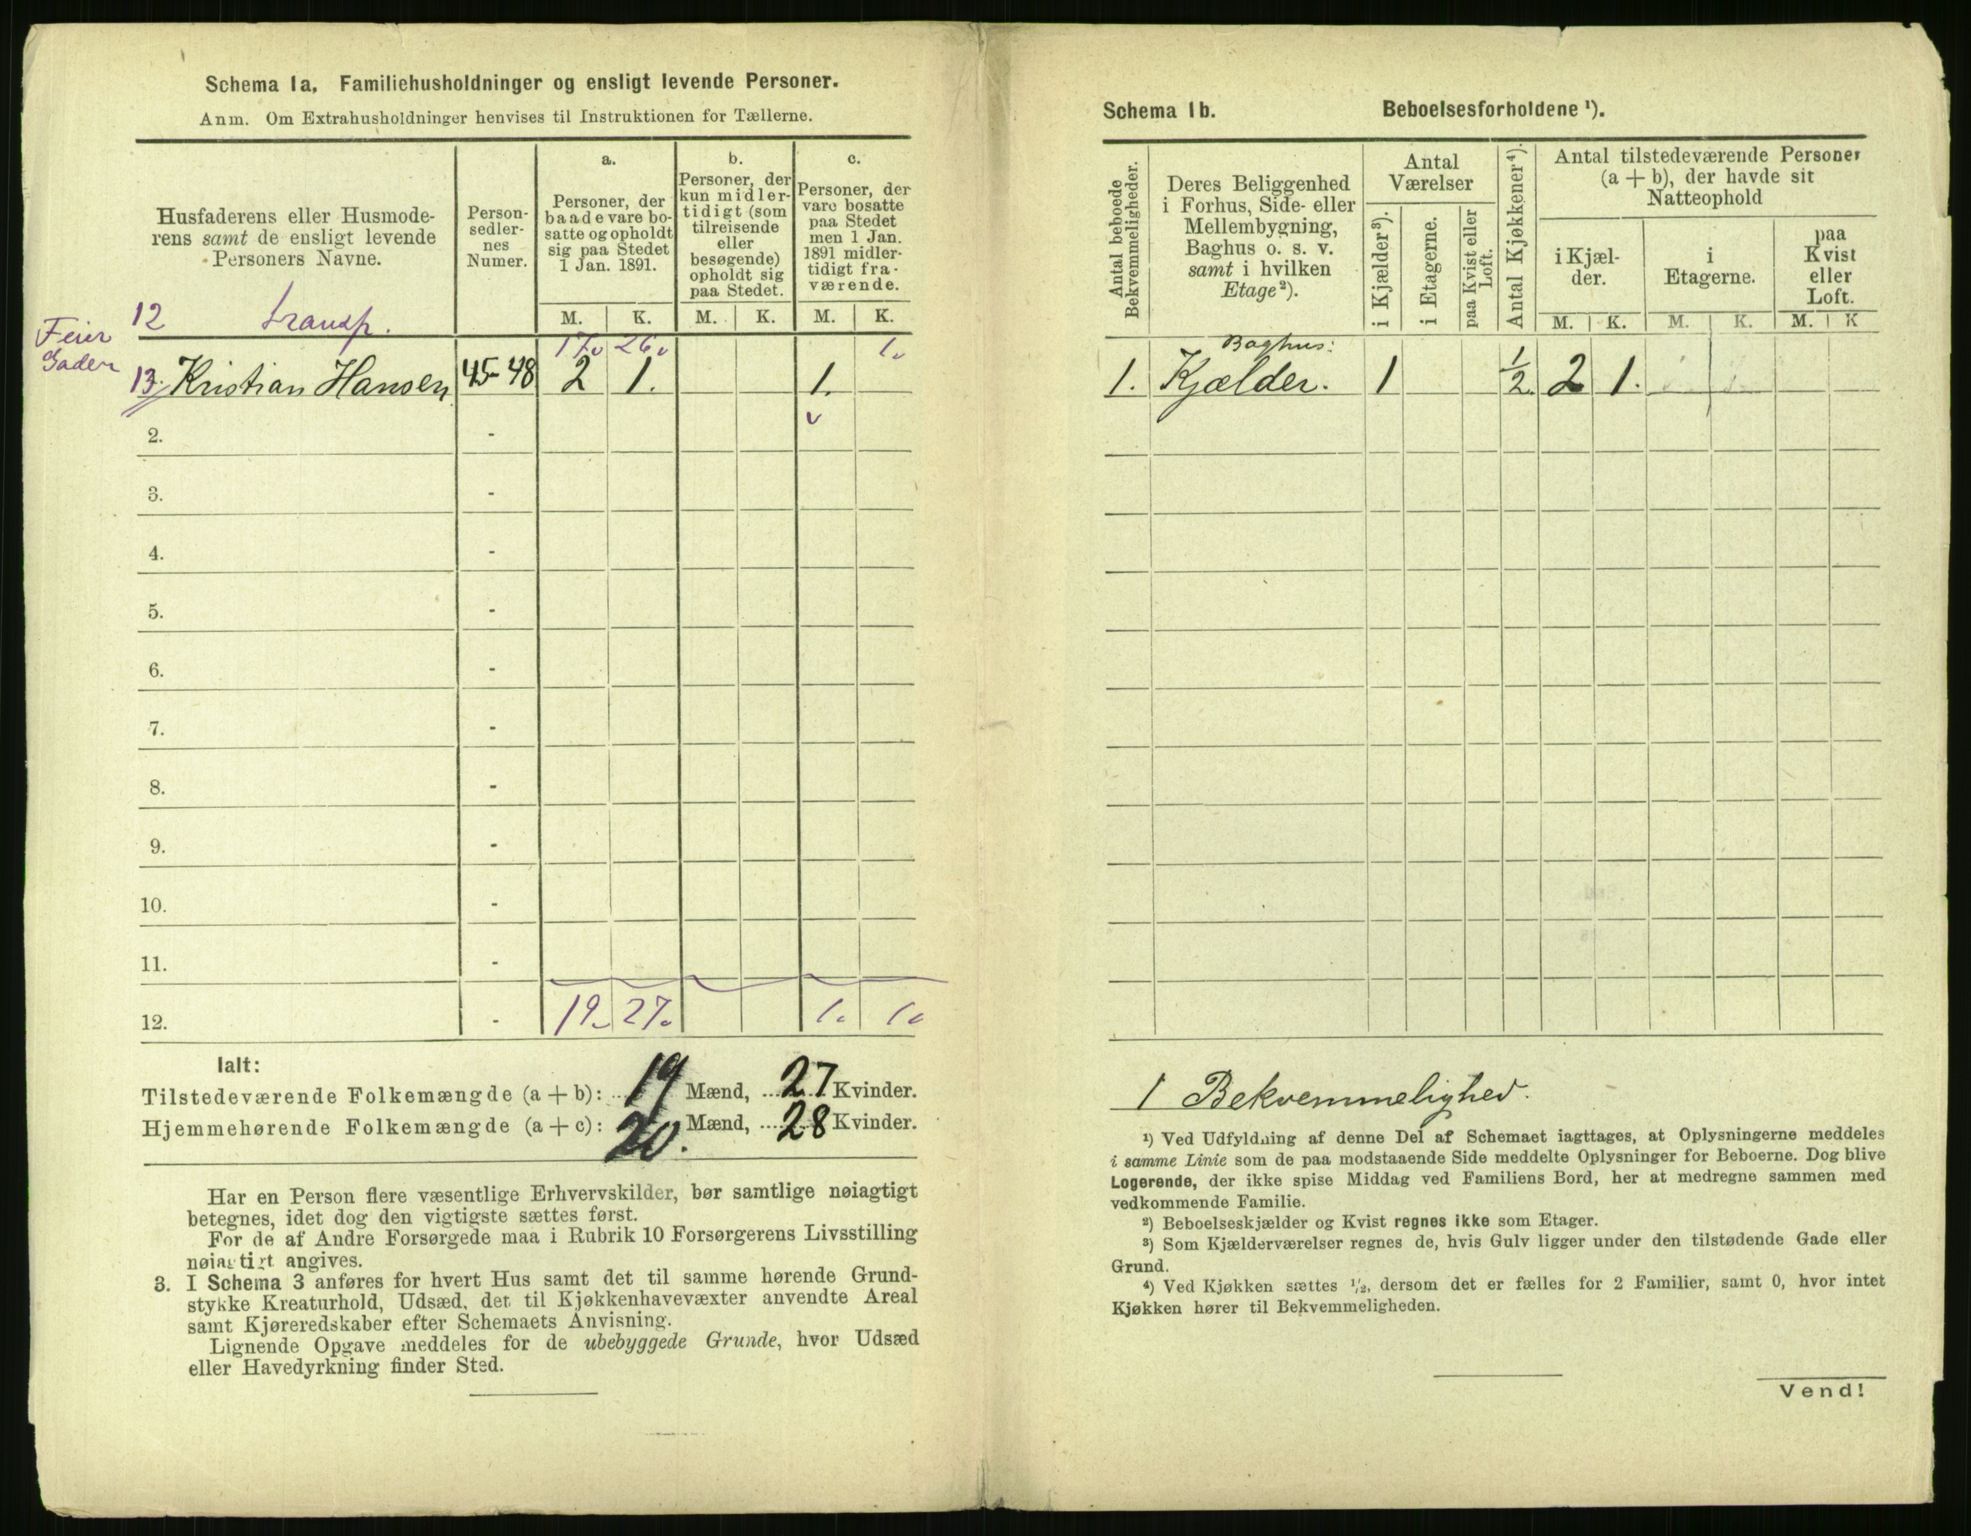 Schema 1a. Familiehusholdninger og ensligt levende Personer.
Anm. Om Extrahusholdninger henvises til Instruktionen for Tællerne.
Husfaderens eller Husmode-
rens samt de ensligt levende
Personers Navne.
Person-
sedler-
nes
Numer.
a.
Personer, der
baade vare bo-
satte og opholdt
sig paa Stedet
1 Jan. 1891.
b.
Personer, der
kun midler-
tidigt (som
tilreisende
eller
besøgende)
opholdt sig
paa Stedet.
c.
Personer, der
vare bosatte
paa Stedet
men 1 Jan.
1891 midler-
tidigt fra-
værende.
M. K. M. K. M. K.
12 transp. 17. 26. 1.
Feier
Gaden
13. Kristian Hansen 45-48 2 1. 1.
2. -
3. -
4. -
5. -
6. -
7. -
8. -
9. -
10. -
11. -
12. - 19. 27. 1. 1.
Ialt:
Tilstedeværende Folkemængde (a + b): 19 Mænd, 27 Kvinder.
Hjemmehørende Folkemængde (a + c): 20. Mænd, 28 Kvinder.
Har en Person flere væsentlige Erhvervskilder, bør samtlige nøiagtigt
betegnes, idet dog den vigtigste sættes først.
For de af Andre Forsørgede maa i Rubrik 10 Forsørgerens Livsstilling
nøiagtigt angives.
3. I Schema 3 anføres for hvert Hus samt det til samme hørende Grund-
stykke Kreaturhold, Udsæd, det til Kjøkkenhavevæxter anvendte Areal
samt Kjøreredskaber efter Schemaets Anvisning.
Lignende Opgave meddeles for de ubebyggede Grunde, hvor Udsæd
eller Havedyrkning finder Sted.
Schema 1b. Beboelsesforholdene ¹).
Antal beboede
Bekvemmeligheder.
Deres Beliggenhed
i Forhus, Side- eller
Mellembygning,
Baghus o. s. v.
samt i hvilken
Etage²).
Antal
Værelser
i Kjælder³).
i Etagerne.
paa Kvist eller
Loft.
Antal Kjøkkener⁴).
Antal tilstedeværende Personer
(a + b), der havde sit
Natteophold
i Kjæl-
der.
i
Etagerne.
paa
Kvist
eller
Loft.
M. K. M. K. M. K
Baghus:
1. Kjælder. 1 1/2. 2 1.
1 Bekvemmelighed.
¹) Ved Udfyldning af denne Del af Schemaet iagttages, at Oplysningerne meddeles
i samme Linie som de paa modstaaende Side meddelte Oplysninger for Beboerne. Dog blive
Logerende, der ikke spise Middag ved Familiens Bord, her at medregne sammen med
vedkommende Familie.
²) Beboelseskjælder og Kvist regnes ikke som Etager.
³) Som Kjælderværelser regnes de, hvis Gulv ligger under den tilstødende Gade eller
Grund.
⁴) Ved Kjøkken sættes ½, dersom det er fælles for 2 Familier, samt 0, hvor intet
Kjøkken hører til Bekvemmeligheden.
Vend!